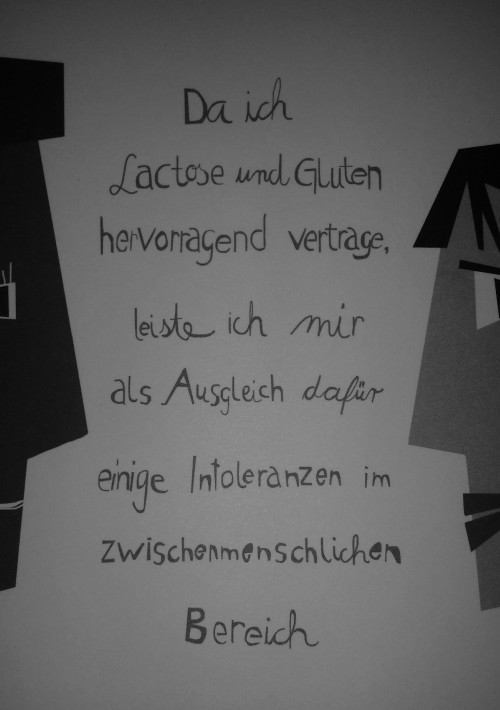 Da ich
Lactose und Gluten
hervorragend vertrage,
leiste ich mir
als Ausgleich dafür
einige Intoleranzen im
zwischenmenschlichen
Bereich